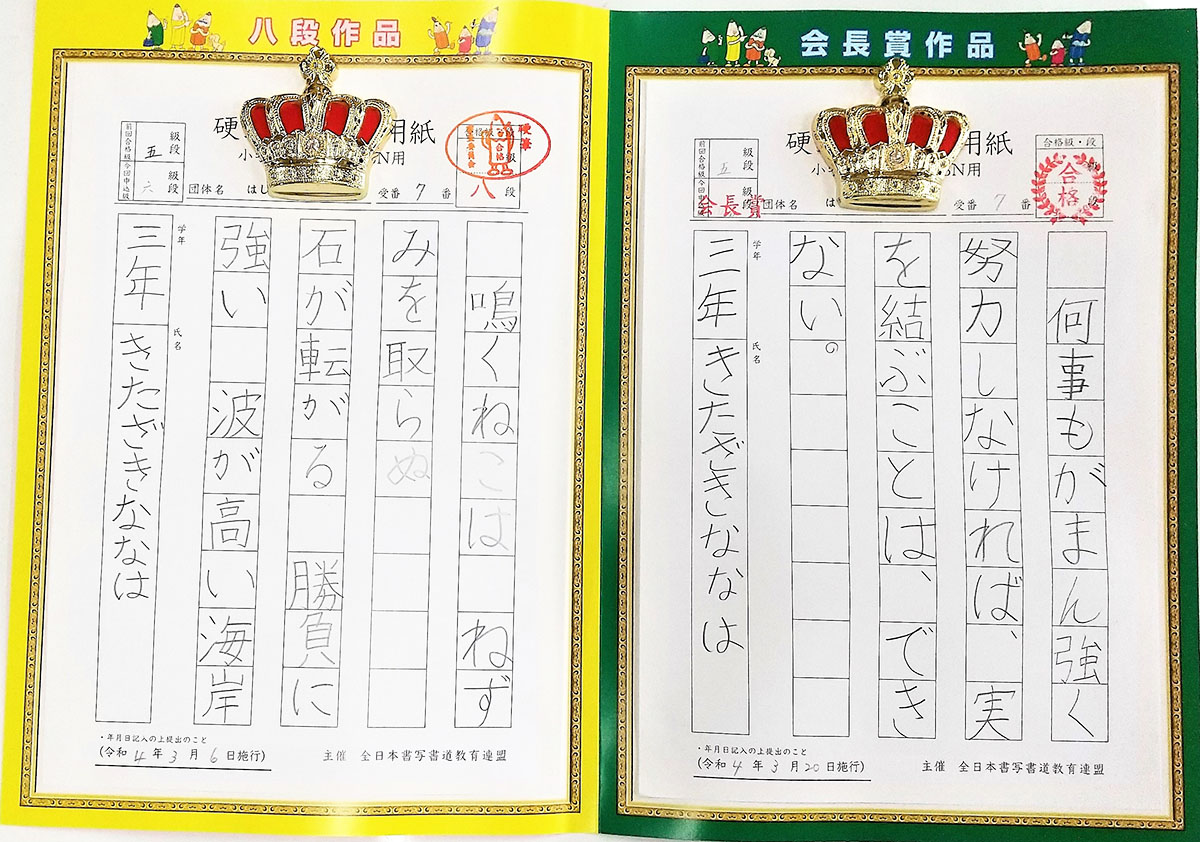 八段作品
硬
用紙
小
N用
前回合格級
今回申込級
五
級
段
六
級
段
団体名
はし
受番
7
番
合格
硬筆
八
段
鳴くねこは ねず
みを取らぬ
石が転がる 勝負に
強い 波が高い海岸
学年
三年
氏名
きたざきななは
・年月日記入の上提出のこと
(令和4年3月6日施行)
主催 全日本書写書道教育連盟
会長賞作品
硬
用紙
小
N用
前回合格級
五
級
段
会長賞
団体名
は
受番
7
番
合格級・段
合格
何事もがまん強く
努力しなければ、実
を結ぶことは、でき
ない。
学年
三年
氏名
きたざきななは
・年月日記入の上提出のこと
(令和4年3月20日施行)
主催 全日本書写書道教育連盟